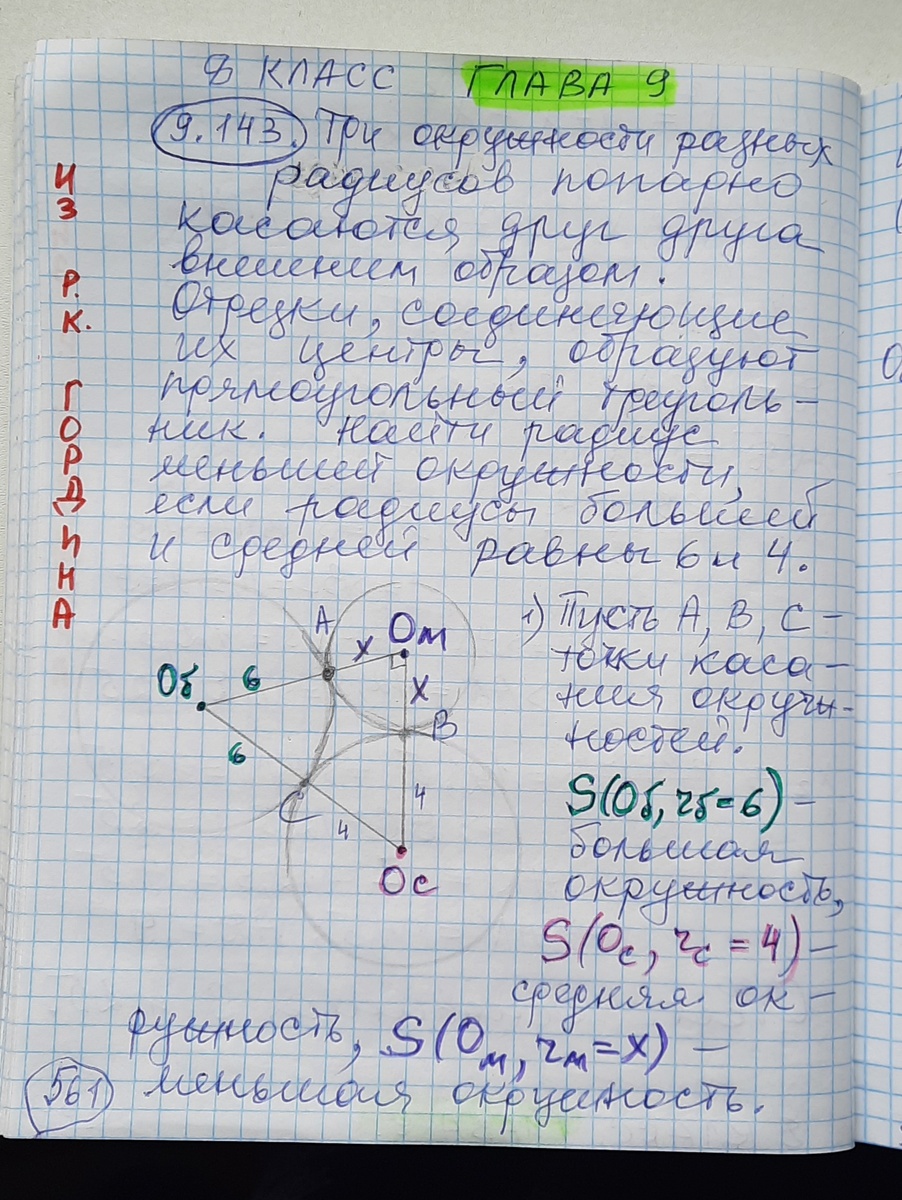 8 КЛАСС ГЛАВА 9
9.143. Три окружности разных
радиусов попарно
касаются друг друга
внешним образом.
Отрезки, соединяющие
их центры, образуют
прямоугольный треуголь-
ник. Найти радиус
меньшей окружности,
если радиусы большей
и средней равны 6 и 4.
ИЗ Р.К. ГОРДИНА
A
Oм
x
Oб
6
x
B
6
C
4
4
Oс
1) Пусть A, B, C -
точки каса-
ния окруж-
ностей.
S(Oб, rб = 6) -
большая
окружность,
S(Oс, rс = 4) -
средняя ок-
ружность, S(Oм, rм = x) -
меньшая окружность.
561